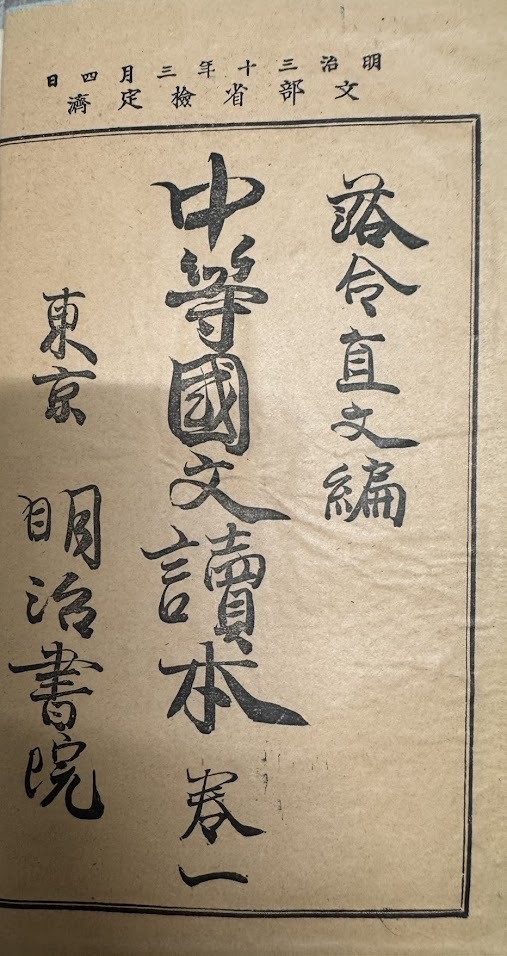 明治三十年三月四日
文部省檢定濟
落合直文編
中等國文讀本 卷一
東京 明治書院